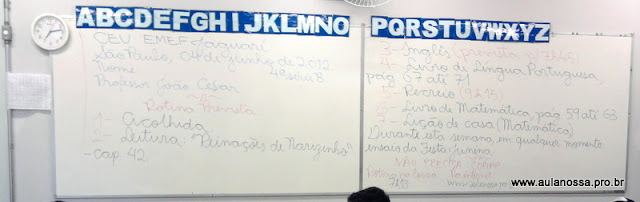 ABCDEFGHIJKLMNO PQRSTUVWXYZ
CEU EMEF Jaguaré
São Paulo, 04 de junho de 2012
Nome 4ª série B
Professor João César
Rotina Prevista
1- Acolhida
2- Leitura: "Reinações de Narizinho"
- cap. 42
3- Inglês
4- Livro de Língua Portuguesa,
pág. 67 até 71
5- Recreio (9h15)
6- Livro de Matemática, pág. 59 até 63
7- Lição de casa (Matemática)
Durante esta semana, em qualquer momento
ensaio da Festa Junina.
NÃO PRECISA
www.aulanossa.pro.br